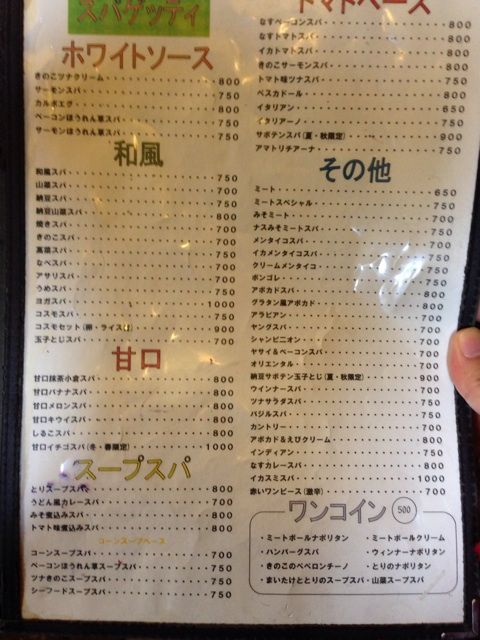 スパゲッティ
ホワイトソース
きのこツナクリーム 800
サーモンスパ 750
カルボエグ 800
ベーコンほうれん草スパ 750
サーモンほうれん草スパ 750
和風
和風スパ 750
山菜スパ 700
納豆スパ 750
納豆山菜スパ 800
焼きスパ 700
きのこスパ 700
高菜スパ 750
なべスパ 700
アサリスパ 700
うめスパ 750
ヨガスパ 1000
コスモスパ 750
コスモセット(卵・ライス付) 900
玉子とじスパ 700
甘口
甘口抹茶小倉スパ 800
甘口バナナスパ 800
甘口メロンスパ 800
甘口キウイスパ 800
しるこスパ 800
甘口イチゴスパ(冬・春限定) 1000
スープスパ
とりスープスパ 800
うどん風カレースパ 700
みそ煮込みスパ 800
トマト味煮込みスパ 800
コーンスープベース
コーンスープスパ 700
ベーコンほうれん草スープスパ 750
ツナきのこスープスパ 750
シーフードスープスパ 750
トマトベース
なすベーコンスパ 800
なすトマトスパ 750
イカトマトスパ 800
きのこサーモンスパ 800
トマト味ツナスパ 750
ペスカドール 800
イタリアン 650
イタリアーノ 750
サボテンスパ(夏・秋限定) 900
アマトリチアーナ 750
その他
ミート 650
ミートスペシャル 750
みそミート 700
ナスみそミートスパ 750
メンタイコスパ 700
イカメンタイコスパ
クリームメンタイコ
ボンゴレ 750
アボカドスパ 800
グラタン風アボカド 800
アラビアン 700
ヤングスパ 700
シャンピニオン 700
ヤサイ&ベーコンスパ 700
オリエンタル 700
納豆サボテン玉子とじ(夏・秋限定) 900
ウインナースパ 700
ツナサラダスパ 750
バジルスパ 750
カントリー 700
アボカド&えびクリーム 800
インディアン 750
なすカレースパ 800
イカスミスパ 1000
赤いワンピース(激辛) 700
ワンコイン 500
・ミートボールナポリタン ・ミートボールクリーム
・ハンバーグスパ ・ウィンナーナポリタン
・きのこのペペロンチーノ ・とりのナポリタン
・まいたけととりのスープスパ ・山菜スープスパ